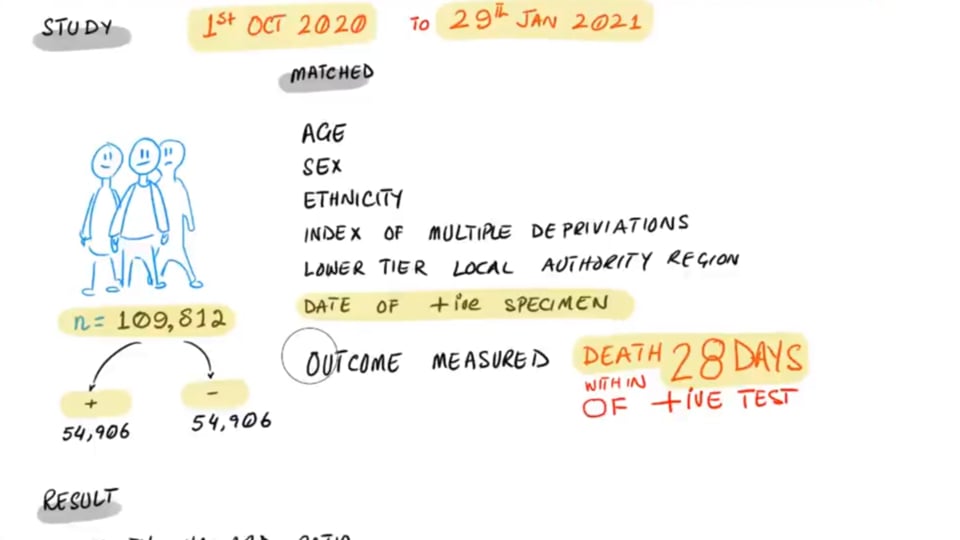 STUDY 1ST OCT 2020 TO 29TH JAN 2021
MATCHED
AGE
SEX
ETHNICITY
INDEX OF MULTIPLE DEPRIVIATIONS
LOWER TIER LOCAL AUTHORITY REGION
DATE OF +ive SPECIMEN
n= 109,812
OUTCOME MEASURED DEATH 28 DAYS
WITHIN
OF +IVE TEST
+ -
54,906 54,906
RESULT